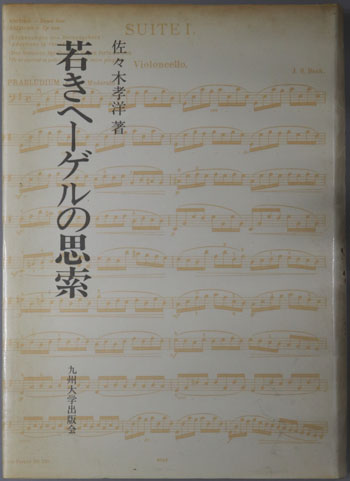 SUITE I.
Violoncello.
J. S. Bach.
PRAELUDIUM
佐々木孝洋著
若きヘーゲルの思索
九州大学出版会